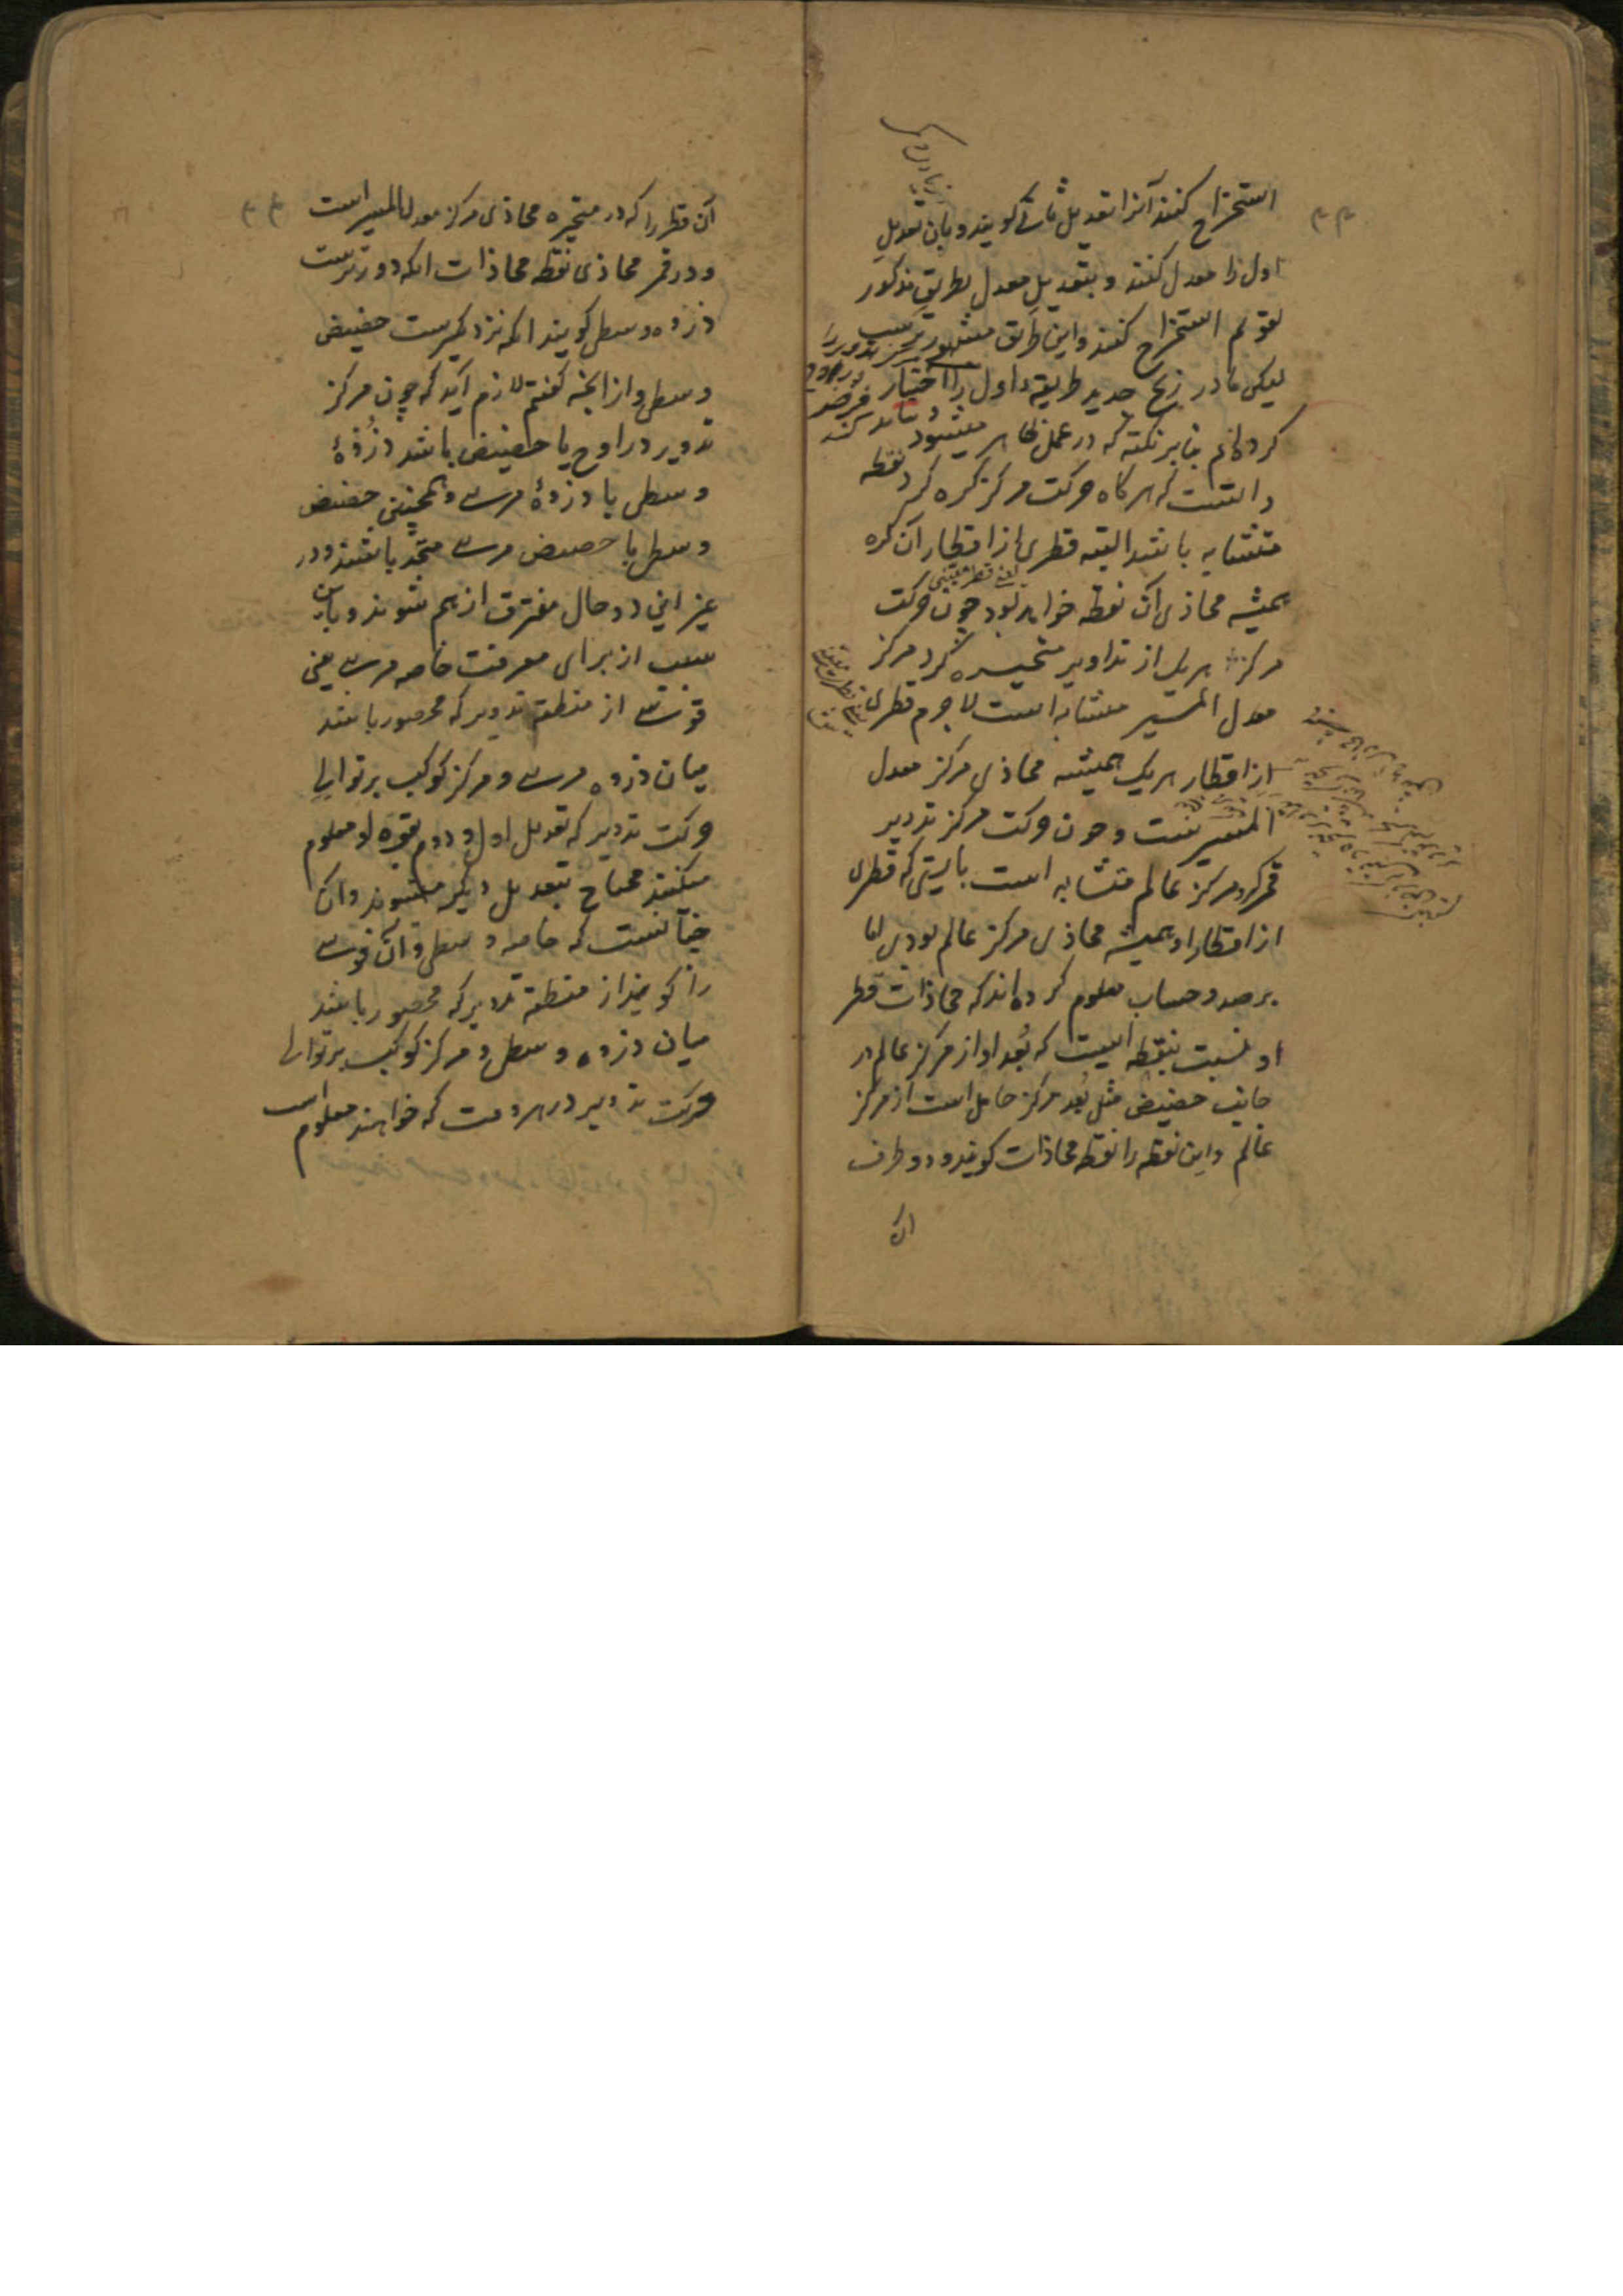 استخراج کنند آنرا تعدیل ثانی کویند و بآن تعدیلِ
اول را معدل کنند و بتعدیلِ معدل بطریقِ مذکور
تقویم استخراج کنند و این طریق مشهورترست
لیکن ما در زیج جدید طریقهٔ اول را اختیار
کرده‌ایم بنابر نکتهٔ که در عمل ظاهر میشود
دانست که هرکاه حرکت مرکز کره کرد نقطه
متشابه باشد البته قطری از اقطار آن کره
همیشه محاذی آن نقطه خواهد بود چون حرکت
مرکز هریک از تداویر متحیره کرد مرکز
معدل المسیر متشابه است لاجرم قطری
از اقطار هریک همیشه محاذی مرکز معدل
المسیرست و چون حرکت مرکز تدویر
قمر کرد مرکز عالم متشابه است بایستی که قطری
از اقطار او همیشه محاذی مرکز عالم بودی اما
برصد و حساب معلوم کرده‌اند که محاذات قطر
او نسبت بنقطه ایست که بُعد او از مرکز عالم در
جانب حضیض مثل بُعد مرکز حامل است از مرکز
عالم و این نقطه را نقطه محاذات کویند و دو طرف
ان
آن قطر را که در متحیره محاذی مرکز معدل المسیر است
و در قمر محاذی نقطه محاذات آنکه دورترست
ذروه وسطی کویند آنکه نزدیکترست حضیض
وسطی و از آنچه کفتیم لازم آید که چون مرکز
تدویر در اوج یا حضیض باشد ذُروهٔ
وسطی با ذروهٔ مرئی و همچنین حضیض
وسطی با حضیض مرئی متحد باشند و در
غیر این دو حال مفترق از هم شوند و باین
سبب از برای معرفت خاصه مرئی یعنی
قوسی از منطقه تدویر که محصور باشد
میان ذروه مرئی و مرکز کوکب بر توالی
حرکت تدویر که تعدیل اول و دوم بقوه او معلوم
میکنند محتاج بتعدیل دیگر میشوند و آن
چنانست که خاصه وسطی و آن قوسی
را کویند از منطقه تدویر که محصور باشد
میان ذروه وسطی و مرکز کوکب بر توالی
حرکت تدویر در هر وقت که خواهند معلوم است